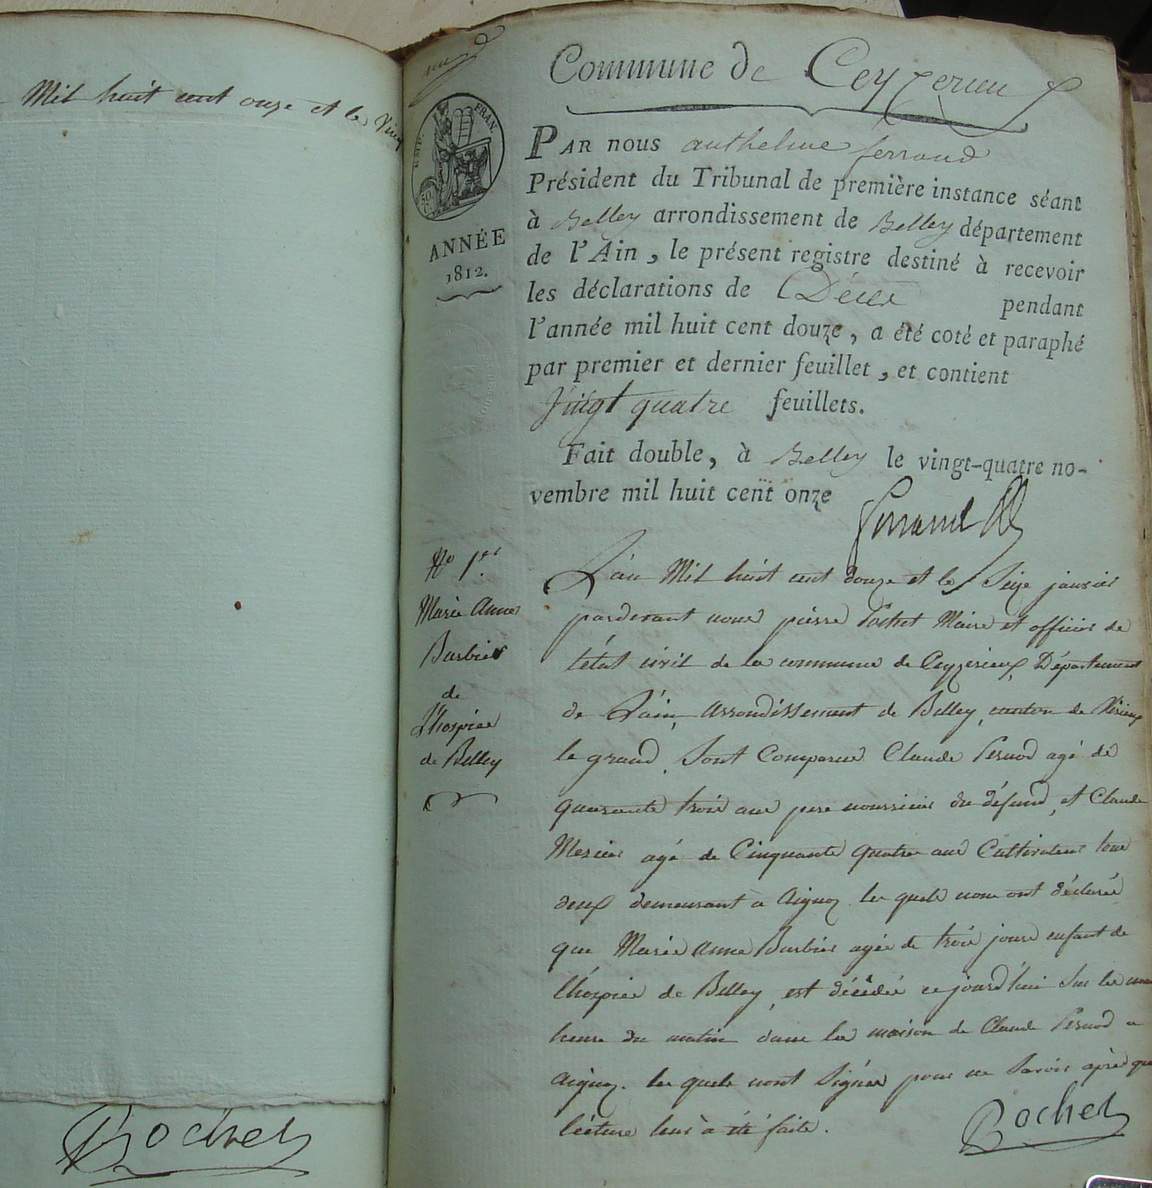 Mil huit cent onze et le
Rochet
Commune de Ceyzerieu
FRAN
50
C
ANNÉE
1812.
PAR nous anthelme ferrand
Président du Tribunal de première instance séant
à Belley arrondissement de Belley département
de l'Ain, le présent registre destiné à recevoir
les déclarations de Décès pendant
l'année mil huit cent douze, a été coté et paraphé
par premier et dernier feuillet, et contient
vingt quatre feuillets.
Fait double, à Belley le vingt-quatre no-
vembre mil huit cent onze
ferrand
No 1er
Marie Anne
Barbier
de
L'hospice
de Belley
L'an Mil huit cent douze et le Seize janvier
pardevant nous pierre Rochet Maire et officier de
l'état civil de la commune de Ceyzerieux, Département
de L'ain, arrondissement de Belley, canton de Virieux
le grand, Sont Comparus Claude Pernod agé de
quarante trois ans pere nourricier du défund, et Claude
Mercier agé de Cinquante quatre ans Cultivateurs tous
deux demeurant à Aignoz les quels nous ont déclaré
que Marie Anne Barbier agée de trois jours enfant de
l'hospice de Belley, est décédée ce jourd'hui Sur les une
heure du matin dans la maison de Claude Pernod a
aignoz. les quels n'ont Signés pour ne Savoir après que
lecture leur à été faite.
Rochet